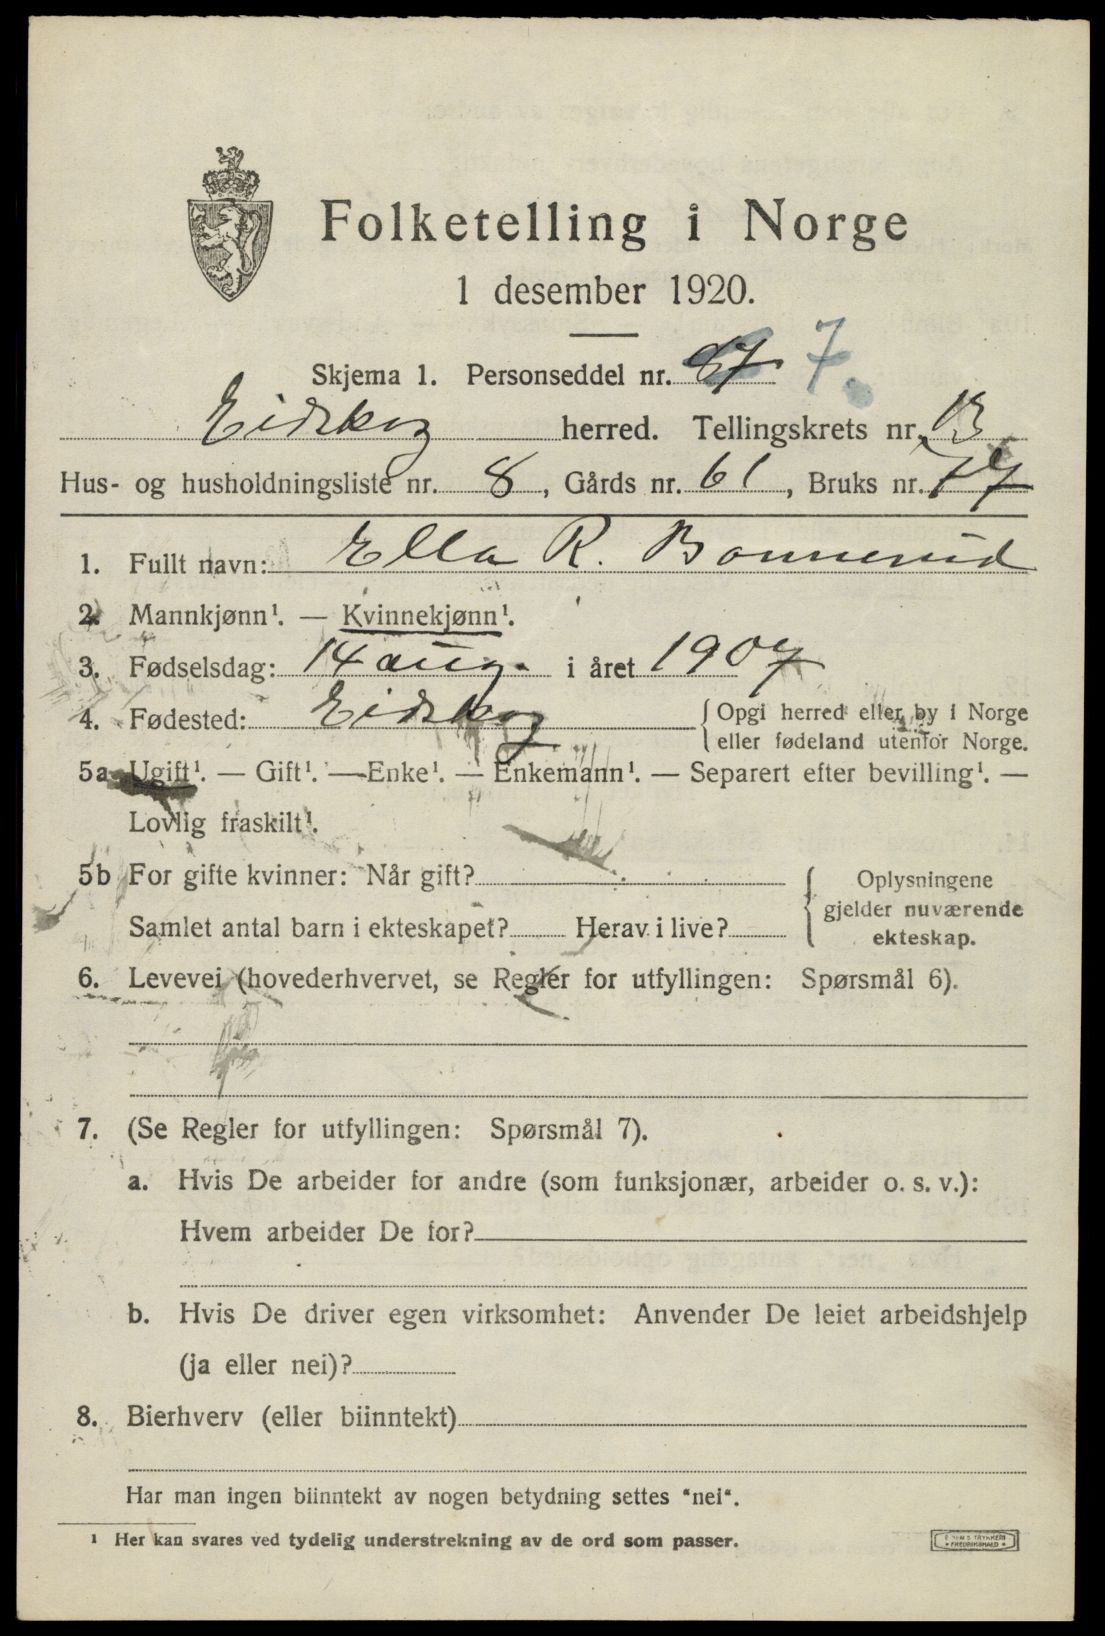 Folketelling i Norge
1 desember 1920.
Skjema 1. Personseddel nr. 7.
Eidskog herred. Tellingskrets nr. 13
Hus- og husholdningsliste nr. 8, Gårds nr. 61, Bruks nr.
1. Fullt navn: Ella R. Bonnerud
2. Mannkjønn¹. — Kvinnekjønn¹.
3. Fødselsdag: 14 aug. i året 1907
4. Fødested: Eidskog {Opgi herred eller by i Norge
eller fødeland utenfor Norge.
5a Ugift¹. — Gift¹. — Enke¹. — Enkemann¹. — Separert efter bevilling¹. —
Lovlig fraskilt¹.
5b For gifte kvinner: Når gift?
Samlet antal barn i ekteskapet? Herav i live?
{Oplysningene
gjelder nuværende
ekteskap.
6. Levevei (hovederhvervet, se Regler for utfyllingen: Spørsmål 6).
7. (Se Regler for utfyllingen: Spørsmål 7).
a. Hvis De arbeider for andre (som funksjonær, arbeider o. s. v.):
Hvem arbeider De for?
b. Hvis De driver egen virksomhet: Anvender De leiet arbeidshjelp
(ja eller nei)?
8. Bierhverv (eller biinntekt)
Har man ingen biinntekt av nogen betydning settes "nei".
¹ Her kan svares ved tydelig understrekning av de ord som passer.